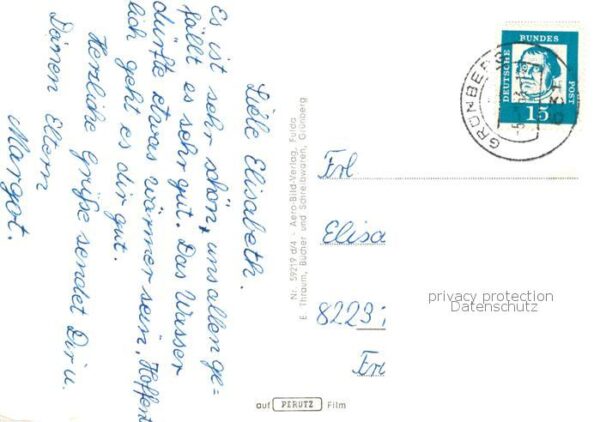 Liebe Elisabeth.
Es ist sehr schön, uns allen ge=
fällt es sehr gut. Das Wasser
dürfte etwas wärmer sein, Hoffent
lich geht es dir gut.
Herzliche Grüße sendet Dir u.
Deinen Eltern
Margot.
Nr. 59219 d/4 - Aero-Bild-Verlag, Fulda
E Thraum, Bücher und Schreibwaren, Grünberg
auf PERUTZ Film
DEUTSCHE BUNDES POST
15
GRÜNBERG
Frl
Elisa
8223
privacy protection
Datenschutz